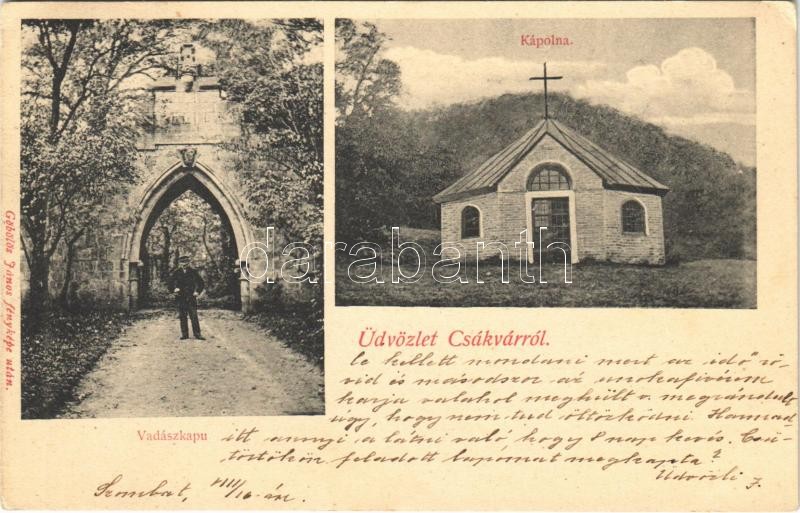 Kápolna.
Göbölös János fényképe után.
Vadászkapu
Üdvözlet Csákvárról.
le kellett mondani mert az idő rö-
vid és másodszor az unokafivérem
karja valahol meghült v. megrándult
úgy, hogy nem tud öltözködni.
itt annyi a látni való hogy 8 nap kevés. Csü-
törtökön feladott lapomat megkapta?
Üdvözli J.
Szombat, VIII/16-án.
darabanth